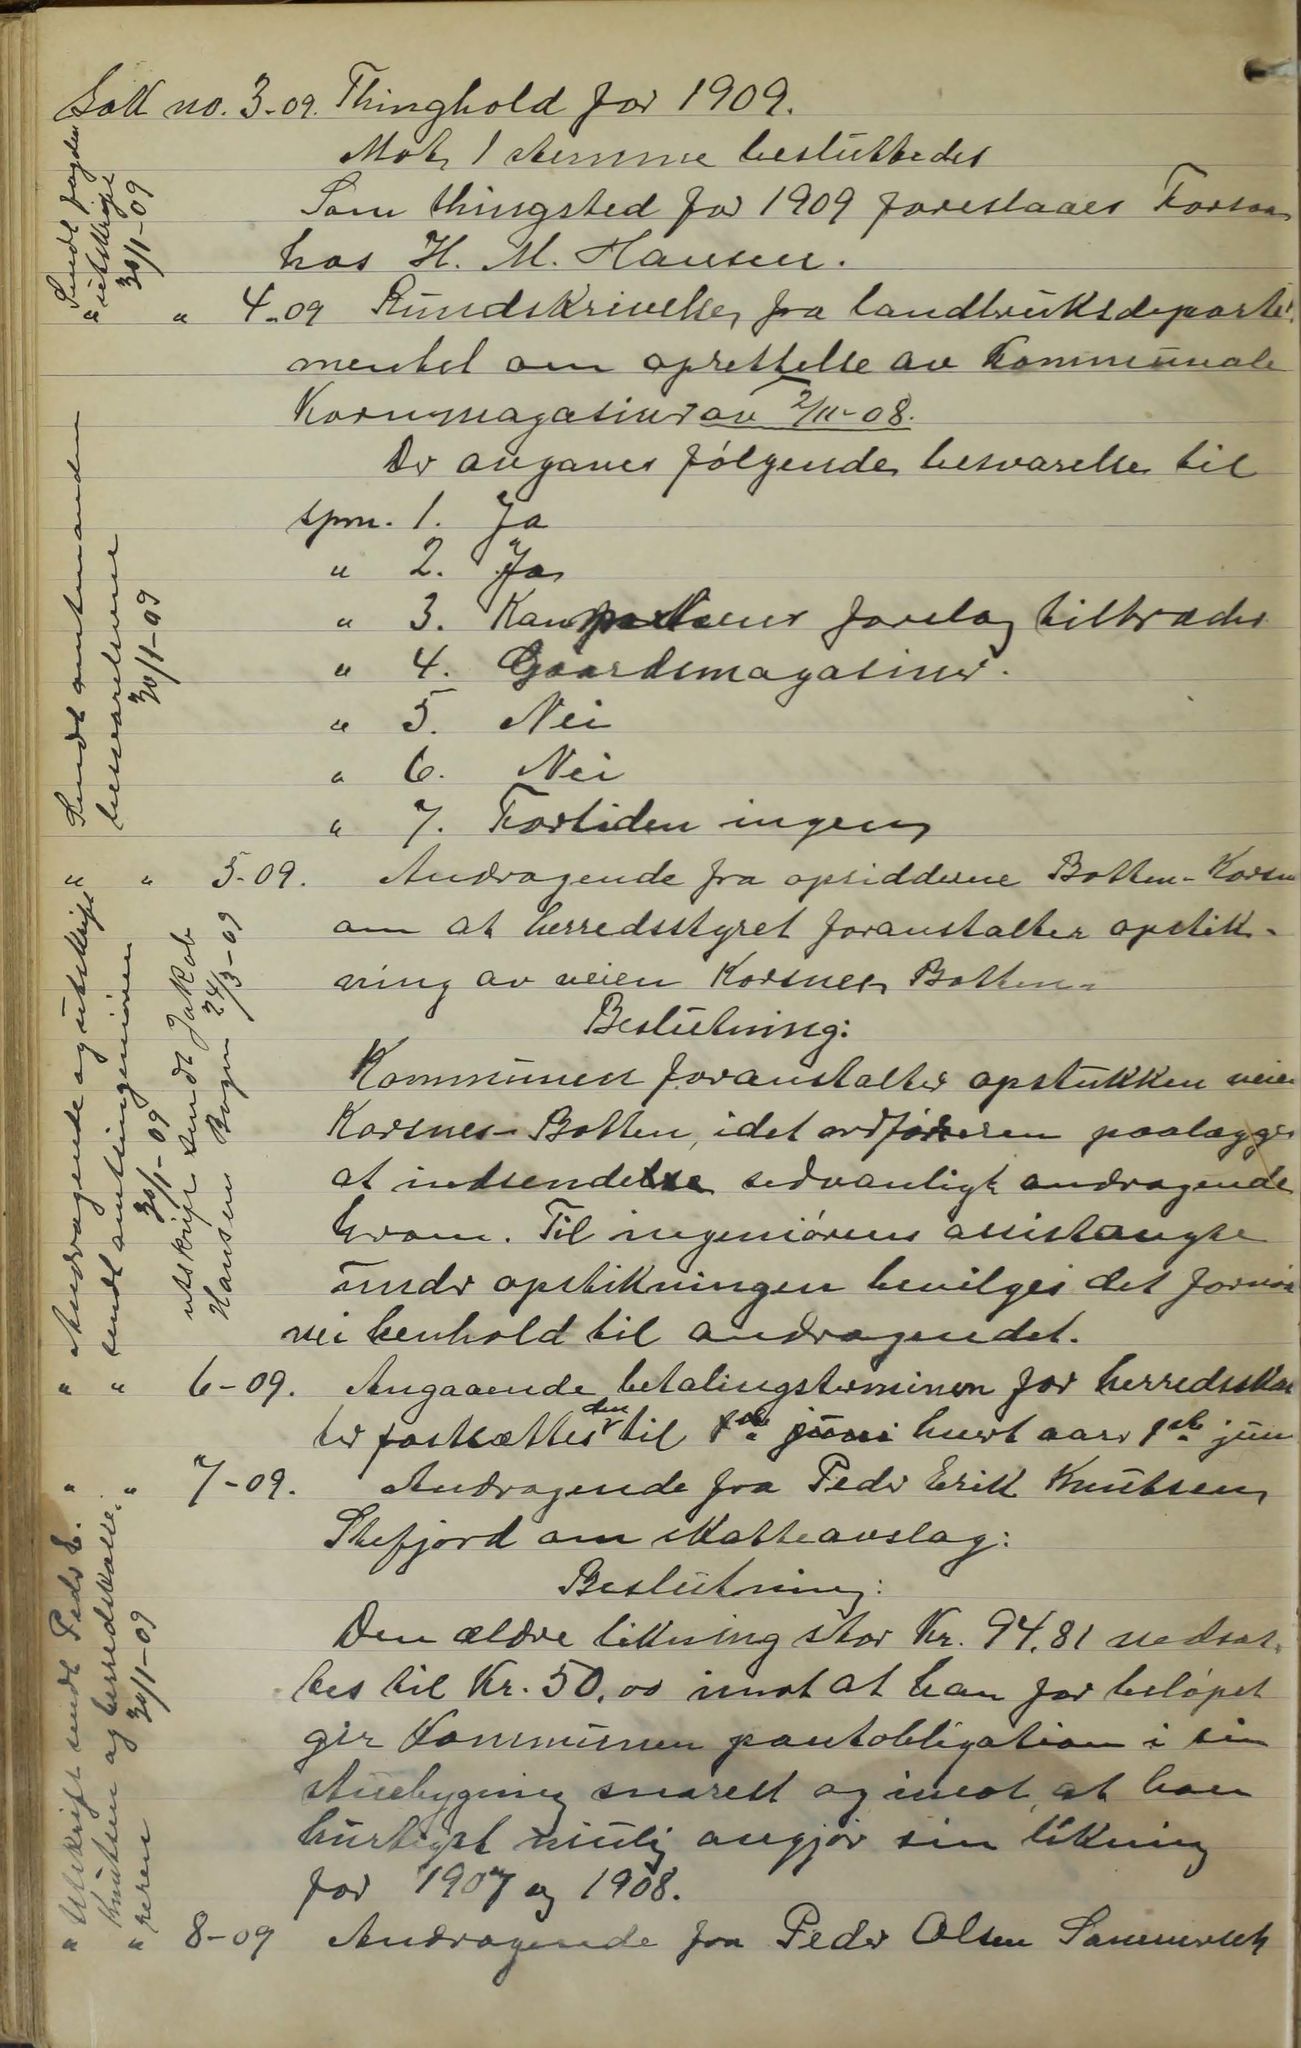 Sak no. 3-09. Thinghold for 1909.
Mot 1 stemme besluttedes
Som thingsted for 1909 foreslaaes Forsaa
hos H. M. Hansen.
Sendt fogden
utskrift
30/1-09
" " 4-09 Rundskrivelse fra landbruksdeparte-
mentet om oprettelse av kommunale
Kornmagasiner av 2/11-08.
Der avgaves følgende besvarelse til
spm. 1. Ja
" 2. Ja
" 3. Kan forslag tiltrædes
" 4. Gaardsmagasiner.
" 5. Nei
" 6. Nei
" 7. Fortiden ingen
Sendt amtmanden
besvarelserne
30/1-09
" " 5-09. Andragende fra opsidderne Botten-Korsn
om at herredsstyret foranstalter opstik-
ning av veien Korsnes Botten.
Beslutning:
Kommunen foranstalter opstukken veien
Korsnes-Botten, idet ordføreren paalægges
at indsende sedvanligt andragende
herom. Til ingeniørens assistangse
under opstikningen bevilges det fornød
i henhold til andragendet.
Andragende og utskrift
sendt amtsingeniøren
30/1-09
utskrift sendt Jakob
Hansen Bogen 24/3-09
" " 6-09. Angaaende betalingsterminen for herredsskat
ter fastsættes den til juni hvert aar 1ste juni
" " 7-09. Andragende fra Peder Erik Knutsen,
Stefjord om skatteavslag:
Beslutning:
Den ældre likning stor Kr. 94.81 nedsæt-
tes til Kr. 50,00 imot at han for beløpet
gir kommunen pantobligation i sin
stuebygning snarest og imot at han
hurtigst mulig avgjør sin likning
for 1907 og 1908.
Utskrift sendt Peder E.
Knutsen og herredskasse-
reren 30/1-09
" " 8-09 Andragende fra Peder Olsen Sommerset